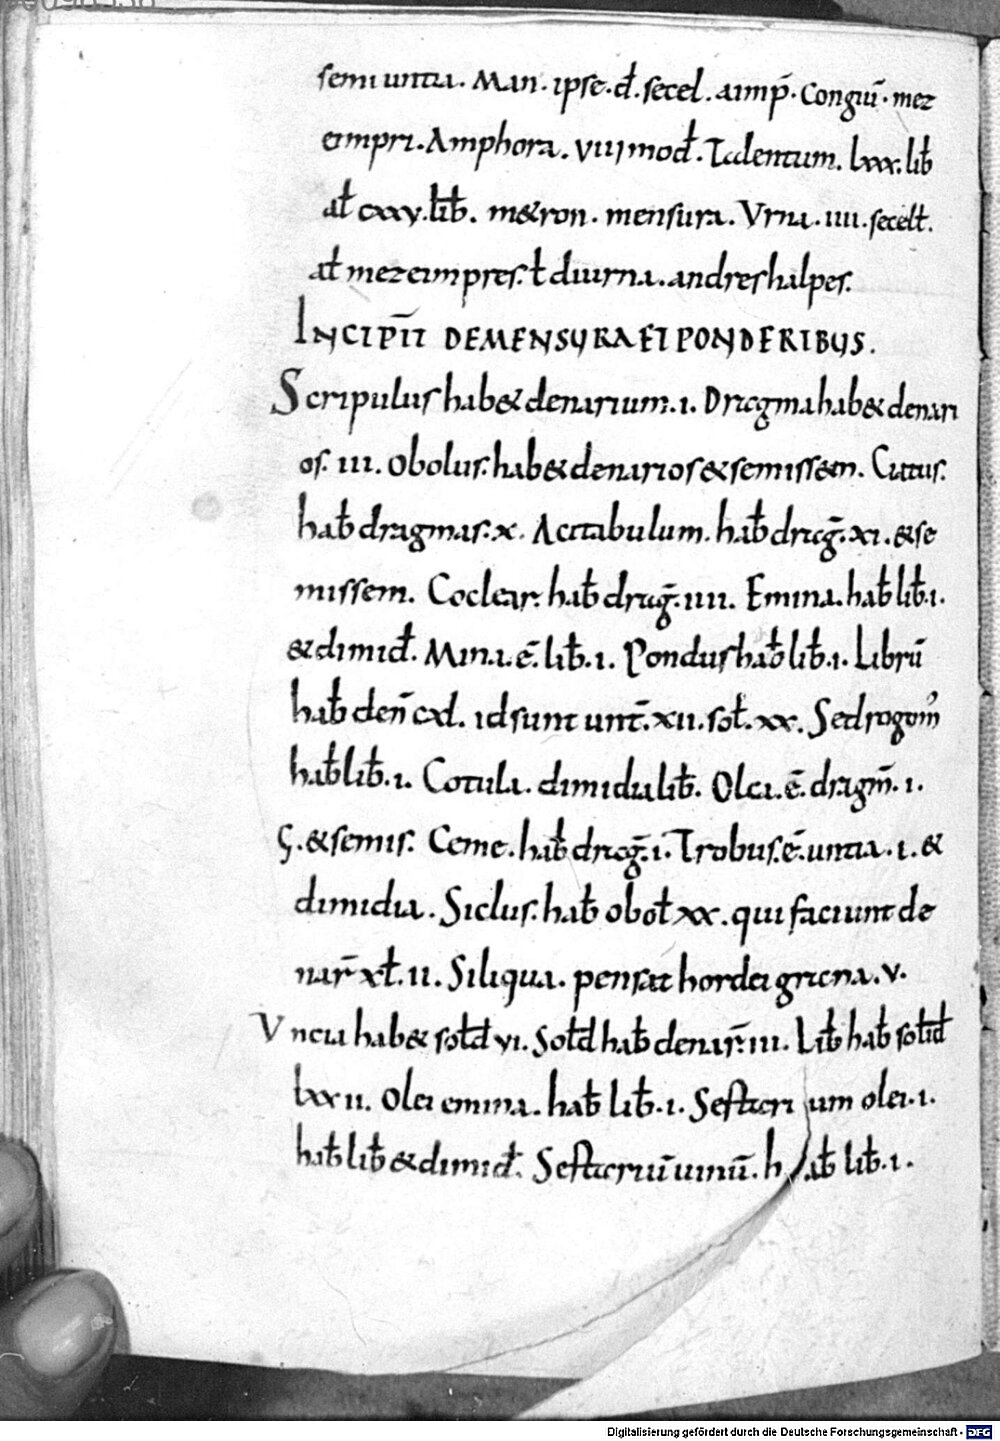 semiuntia. Man. ipse. đ. secel. aimp̄. Congiū. mez
eimpri. Amphora. viij mođ. Talentum. lxxx. liƀ
aƚ cxxv. liƀ. m&ron. mensura. Vrna. iiii. secelƚ.
aƚ mezeimpres. ƚ diurna. andreshalpes.
INCIPĪT DEMENSURA ET PONDERIBUS.
Scripulus hab& denarium. i. Dragma hab& denari
os. iii. Obolus. hab& denarios & semissem. Ciatus.
haƀ dragmas. x. Acitabulum. haƀ draḡ. xi. & se
missem. Coclear. haƀ draḡ. iiii. Emina. haƀ liƀ. i.
& dimiđ. Mina. ē. liƀ. i. Pondus haƀ liƀ. i. Librū
haƀ den̄ cxl. id sunt unt̄. xii. soƚ. xx.
haƀ liƀ. i. Cotula. dimidia liƀ. Olei. ē. dragm̄. i.
ς. & semis. Ceme. haƀ draḡ. i. Trobus. ē. untia. i. &
dimidia. Siclus. haƀ oboƚ xx. qui faciunt de
nar̄ xƚ. ii. Siliqua. pensat hordei grana. v.
Vncia hab& soƚđ vi. Soƚđ haƀ denar̄. iii. Liƀ haƀ soƚiđ
lxxii. Olei emina. haƀ liƀ. i. Sestari um olei. i.
haƀ liƀ & dimiđ. Sestariū uinū. h aƀ liƀ. i.
Digitalisierung gefördert durch die Deutsche Forschungsgemeinschaft - DFG